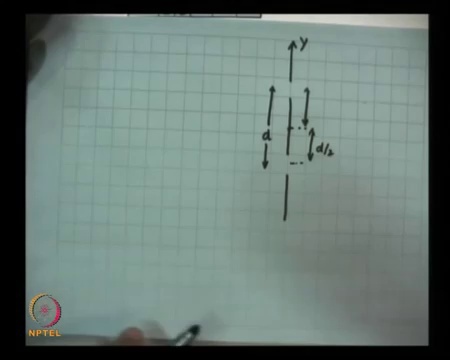 y
d
d/2
NPTEL